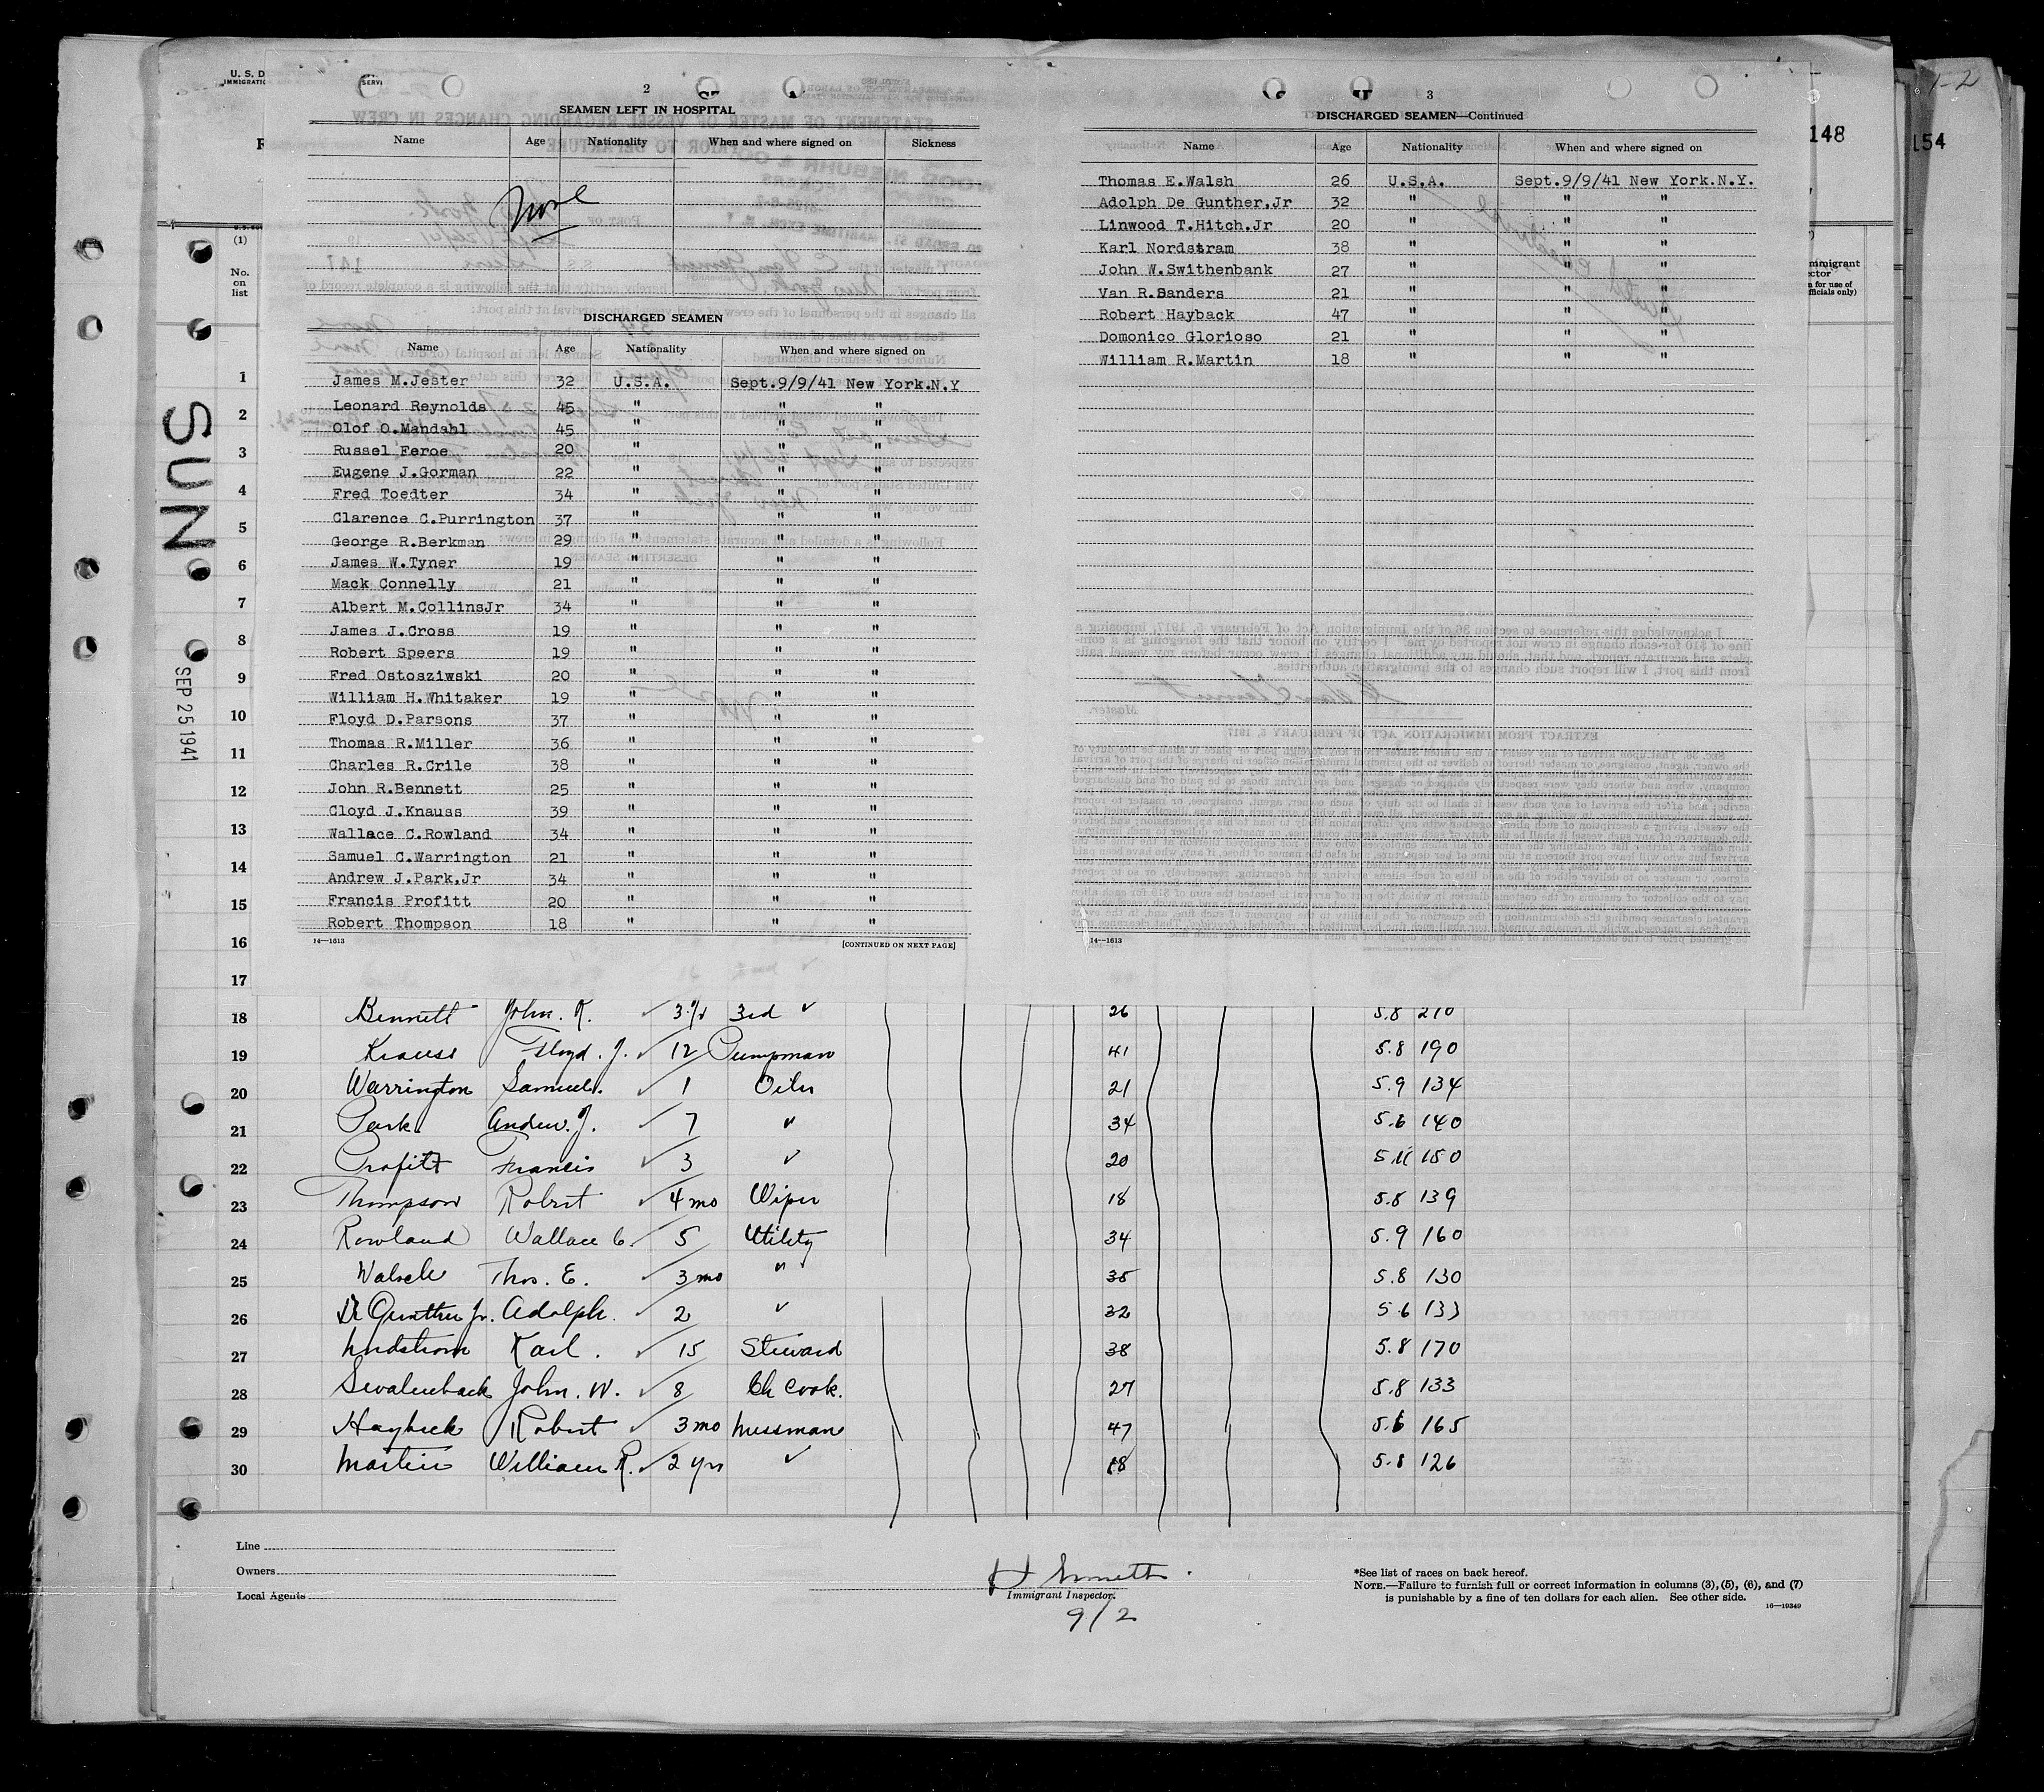 U. S. D
IMMIGRATIO
SERVI
2
SEAMEN LEFT IN HOSPITAL
Name Age Nationality When and where signed on Sickness
None
DISCHARGED SEAMEN
Name Age Nationality When and where signed on
James M.Jester 32 U.S.A. Sept.9/9/41 New York.N.Y
Leonard Reynolds 45 " " "
Olof O.Mandahl 45 " " "
Russel Feroe 20 " " "
Eugene J.Gorman 22 " " "
Fred Toedter 34 " " "
Clarence C.Purrington 37 " " "
George R.Berkman 29 " " "
James W.Tyner 19 " " "
Mack Connelly 21 " " "
Albert M.CollinsJr 34 " " "
James J.Cross 19 " " "
Robert Speers 19 " " "
Fred Ostosziwski 20 " " "
William H.Whitaker 19 " " "
Floyd D.Parsons 37 " " "
Thomas R.Miller 36 " " "
Charles R.Crile 38 " " "
John R.Bennett 25 " " "
Cloyd J.Knauss 39 " " "
Wallace C.Rowland 34 " " "
Samuel C.Warrington 21 " " "
Andrew J.Park,Jr 34 " " "
Francis Profitt 20 " " "
Robert Thompson 18 " " "
14—1613 [CONTINUED ON NEXT PAGE]
3
DISCHARGED SEAMEN—Continued
Name Age Nationality When and where signed on
Thomas E.Walsh 26 U.S.A. Sept.9/9/41 New York.N.Y.
Adolph De Gunther,Jr 32 " " "
Linwood T.Hitch,Jr 20 " " "
Karl Nordstram 38 " " "
John W.Swithenbank 27 " " "
Van R.Sanders 21 " " "
Robert Hayback 47 " " "
Domonico Glorioso 21 " " "
William R.Martin 18 " " "
14—1613
148
154
1-2
mmigrant
ctor
n for use of
fficials only)
(1)
No.
on
list
SUN
SEP 25 1941
1
2
3
4
5
6
7
8
9
10
11
12
13
14
15
16
17
18 Bennett John. R. 3 yr 3rd 26 5.8 210
19 Krauss Floyd. J. 12 Pumpman 41 5.8 190
20 Warrington Samuel. 1 Oiler 21 5.9 134
21 Park Andrew. J. 7 " 34 5.6 140
22 Profitt Francis 3 " 20 5.11 150
23 Thompson Robert 4 mo Wiper 18 5.8 139
24 Rowland Wallace C. 5 Utility 34 5.9 160
25 Walsh Thos. E. 3 mo " 35 5.8 130
26 De Gunther Jr. Adolph. 2 " 32 5.6 133
27 Nordstrom Karl. 15 Steward 38 5.8 170
28 Swalenback John. W. 8 Ch Cook. 27 5.8 133
29 Hayback Robert 3 mo Messman 47 5.6 165
30 Martin William R. 2 yrs " 18 5.8 126
Line
Owners
Local Agents
Immigrant Inspector.
9/2
*See list of races on back hereof.
NOTE.—Failure to furnish full or correct information in columns (3), (5), (6), and (7)
is punishable by a fine of ten dollars for each alien. See other side.
16—19349